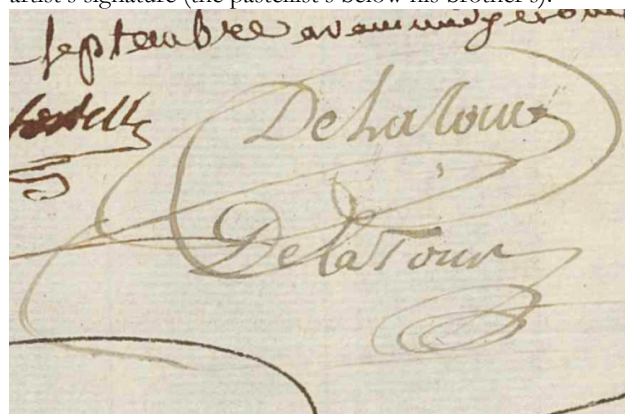 artist's signature (the pastellist's below his brother's):
septembre avant midy
DeLatour
DelaTour